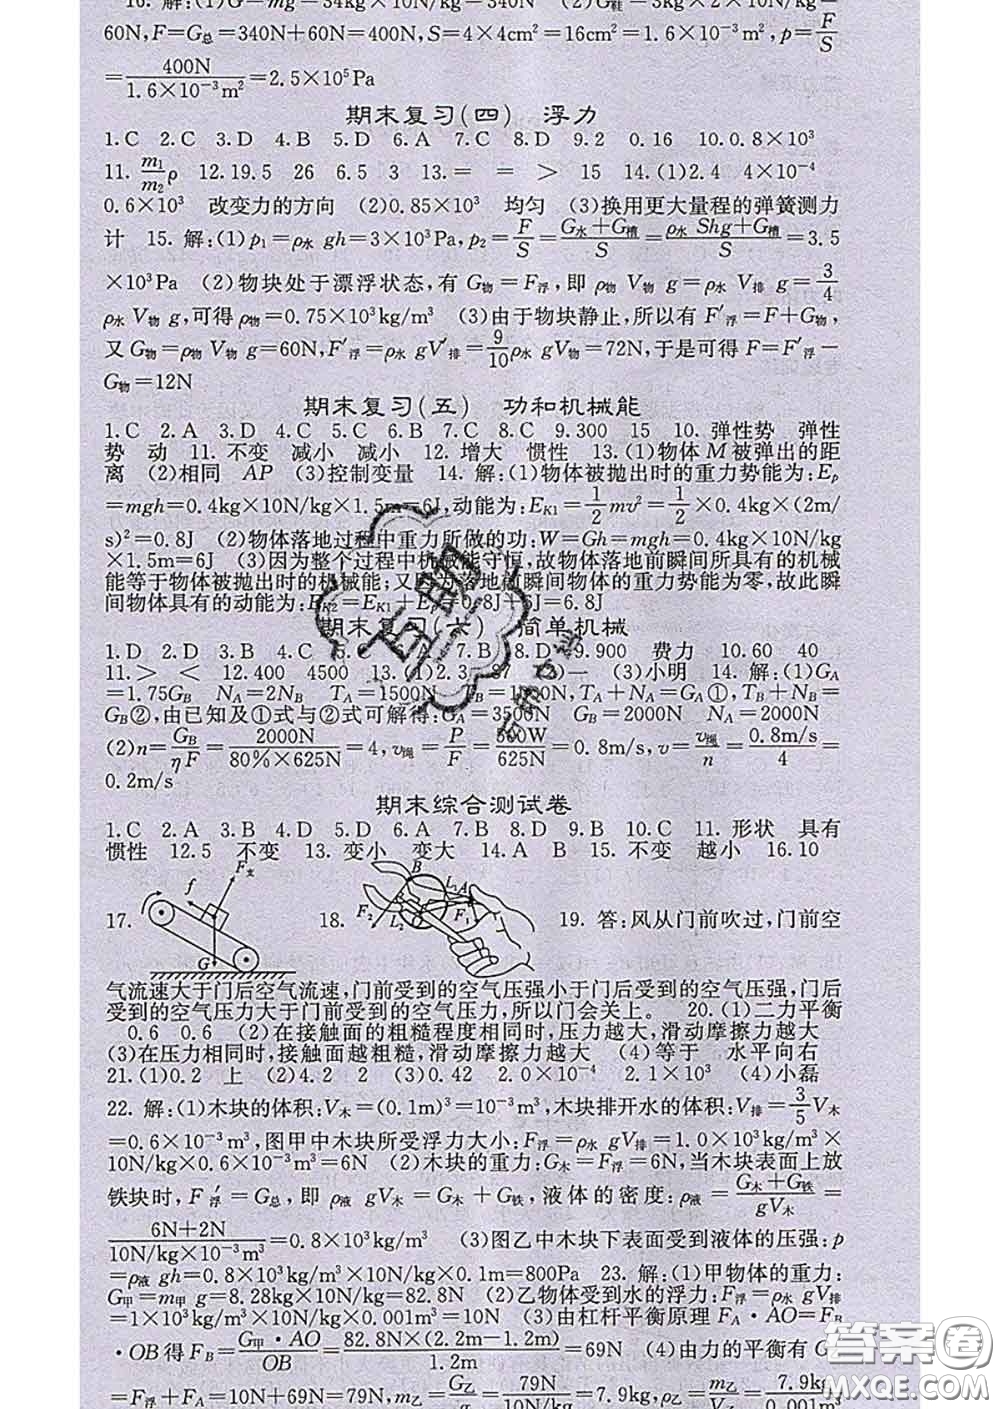 16. 解:(1)G=mg=34kg×10N/kg=340N　(2)G鞋=3kg×2×10N/kg=
60N,F=G总=340N+60N=400N,S=4×4cm²=16cm²=1.6×10⁻³m²,p=F/S
=400N/1.6×10⁻³m²=2.5×10⁵Pa
期末复习(四)　浮力
1.C　2.C　3.D　4.B　5.D　6.A　7.C　8.D　9.2　0.16　10.0.8×10³
11.m₁/m₂ρ　12.19.5　26　6.5　3　13.=　=　>　15　14.(1)2.4　4×10⁻⁴
0.6×10³　改变力的方向　(2)0.85×10³　均匀　(3)换用更大量程的弹簧测力
计　15. 解:(1)p₁=ρ水gh=3×10³Pa,p₂=F/S=G水+G槽/S=ρ水Shg+G槽/S=3.5
×10³Pa　(2)物块处于漂浮状态,有G物=F浮,即ρ物V物g=ρ水V排g=3/4
ρ水V物g,可得ρ物=0.75×10³kg/m³　(3)由于物块静止,所以有F′浮=F+G物,
又G物=ρ物V物g=60N,F′浮=ρ水gV′排=9/10ρ水gV物=72N,于是可得F=F′浮−
G物=12N
期末复习(五)　功和机械能
1.C　2.A　3.D　4.C　5.C　6.B　7.C　8.C　9.300　15　10. 弹性势　弹性
势　动　11. 不变　减小　减小　12. 增大　惯性　13.(1)物体M被弹出的距
离　(2)相同　AP　(3)控制变量　14. 解:(1)物体被抛出时的重力势能为:Eₚ
=mgh=0.4kg×10N/kg×1.5m=6J,动能为:EK1=1/2mv²=1/2×0.4kg×(2m/
s)²=0.8J　(2)物体落地过程中重力所做的功:W=Gh=mgh=0.4kg×10N/kg
×1.5m=6J　(3)因为整个过程中机械能守恒,故物体落地前瞬间所具有的机械
能等于物体被抛出时的机械能;又因为落地前瞬间物体的重力势能为零,故此瞬
间物体具有的动能为:EK2=EK1+Eₚ=0.8J+6J=6.8J
期末复习(六)　简单机械
1.D　2.D　3.B　4.C　5.　7.B　8.D　9.900　费力　10.60　40
11.>　<　12.400　4500　13.(1)2.3　87　(2)一　(3)小明　14. 解:(1)GA
=1.75GB　NA=2NB　TA=1500N　TB=1000N,TA+NA=GA①,TB+NB=
GB②,由已知及①式与②式可解得:GA=3500N　GB=2000N　NA=2000N
(2)n=GB/ηF=2000N/80%×625N=4,v绳=P/F=500W/625N=0.8m/s,v=v绳/n=0.8m/s/4=
0.2m/s
期末综合测试卷
1.C　2.A　3.B　4.D　5.D　6.A　7.B　8.D　9.B　10.C　11. 形状　具有
惯性　12.5　不变　13. 变小　变大　14.A　B　15. 不变　越小　16.10
F支
f
G
B
L₁
A
F₂
F₁
L₂
17.　18.　19. 答:风从门前吹过,门前空
气流速大于门后空气流速,门前受到的空气压强小于门后受到的空气压强,门后
受到的空气压力大于门前受到的空气压力,所以门会关上。　20.(1)二力平衡
0.6　0.6　(2)在接触面的粗糙程度相同时,压力越大,滑动摩擦力越大
(3)在压力相同时,接触面越粗糙,滑动摩擦力越大　(4)等于　水平向右
21.(1)0.2　上　(2)4.2　2　(3)0.42　2.0×10⁻⁴　2.1×10³　(4)小磊
22. 解:(1)木块的体积:V木=(0.1m)³=10⁻³m³,木块排开水的体积:V排=3/5V木
=0.6×10⁻³m³,图甲中木块所受浮力大小:F浮=ρ水gV排=1.0×10³kg/m³×
10N/kg×0.6×10⁻³m³=6N　(2)木块的重力:G木=F浮=6N,当木块表面上放
铁块时,F′浮=G总,即ρ液gV木=G木+G铁,液体的密度:ρ液=G木+G铁/gV木=
6N+2N/10N/kg×10⁻³m³=0.8×10³kg/m³　(3)图乙中木块下表面受到液体的压强:p
=ρ液gh=0.8×10³kg/m³×10N/kg×0.1m=800Pa　23. 解:(1)甲物体的重力:
G甲=m甲g=8.28kg×10N/kg=82.8N　(2)乙物体受到水的浮力:F浮=ρ水gV排
=1×10³kg/m³×10N/kg×0.001m³=10N　(3)由杠杆平衡原理FA·AO=FB
·OB得FB=G甲·AO/OB=82.8N×(2.2m−1.2m)/1.2m=69N　(4)由力的平衡有G
=F浮+FA=10N+69N=79N,m乙=G乙/g=79N/10N/kg=7.9kg,ρ乙=m乙/V乙=7.9kg/0.001m³
答案圈
MXQE.COM